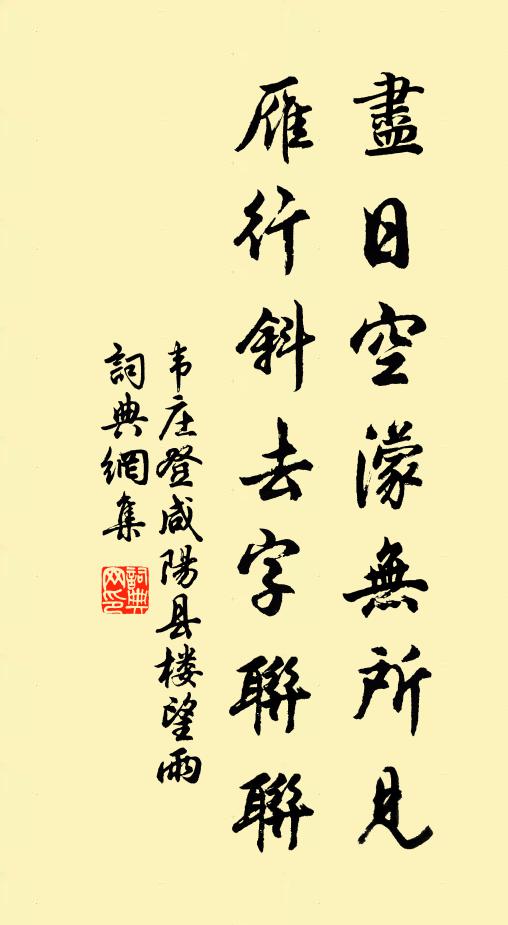 盡日空濛無所見
雁行斜去字聯聯
韦庄登咸陽县楼望雨
詞典網集
詞典
网印